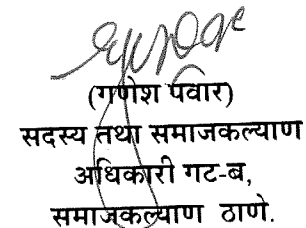 (गणेश पवार)
सदस्य तथा समाजकल्याण
अधिकारी गट-ब,
समाजकल्याण ठाणे.